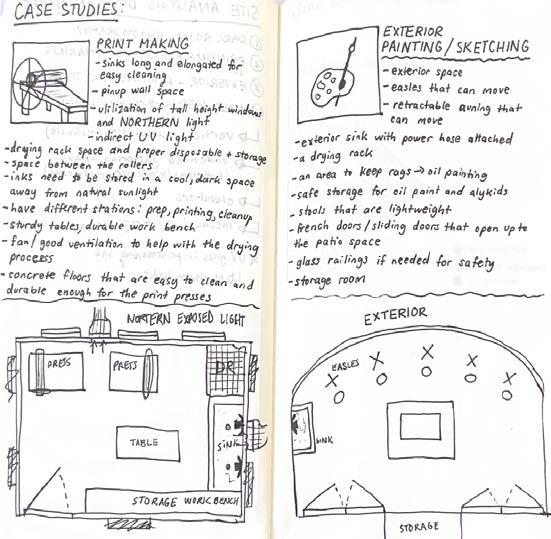 CASE STUDIES:
PRINT MAKING
- sinks long and elongated for
easy cleaning
- pinup wall space
- utilization of tall height windows
and NORTHERN light
- indirect UV light
- drying rack space and proper disposable + storage
- space between the rollers
- inks need to be stored in a cool, dark space
away from natural sunlight
- have different stations: prep, printing, cleanup
- sturdy tables, durable work bench
- fan/good ventilation to help with the drying
processs
- concrete floors that are easy to clean and
durable enough for the print presses
NORTERN EXPOSED LIGHT
PRESS
PRESS
DR
TABLE
SINK
STORAGE WORKBENCH
EXTERIOR
PAINTING/SKETCHING
- exterior space
- easles that can move
- retractable awning that
can move
- exterior sink with power hose attached
- a drying rack
- an area to keep rags → oil painting
- safe storage for oil paint and alykids
- stools that are lightweight
- french doors/sliding doors that open up to
the patio space
- glass railings if needed for safety
- storage room
EXTERIOR
EASLES
SINK
STORAGE